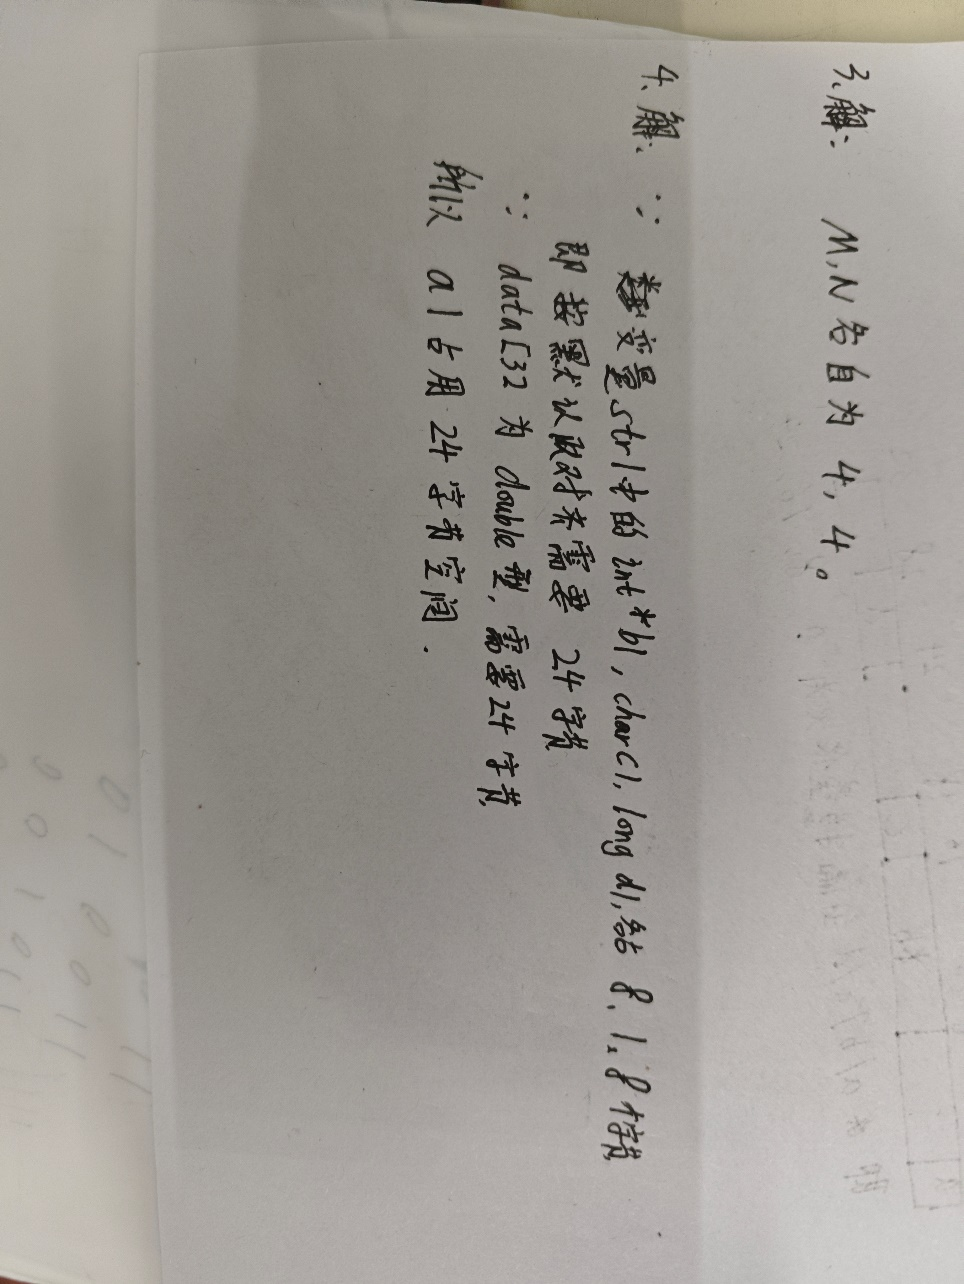 3、解: M,N各自为 4, 4。
4、解: ∵ 变量str1中的 int *b1, char c1, long d1, 各占 8、1、8个字节
即按默认以对齐需要 24字节
∵ data[32 为 double型, 需要24字节,
所以 a1占用 24字节空间.